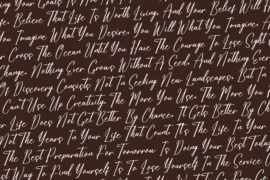 ing Your Goals Is Not As
Believe That Life Is Worth Living, And Your Belief Will
Imagine What You Desire; You Will What You Imagine, A
Cross The Ocean Until You Have The Courage To Lose Sight
Change. Nothing Ever Grows Without A Seed, And Nothing Ever
Of Discovery Consists Not In Seeking New Landscapes, But In
Can't Use Up Creativity. The More You Use, The More You
Life Does Not Get Better By Chance, It Gets Better By Ch
Not The Years In Your Life That Count. It's The Life In
The Best Preparation For Tomorrow Is Doing Your Best Today
Best Way To Find Yourself Is To Lose Yourself In The Service